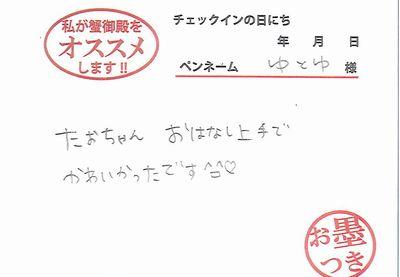 私が蟹御殿を
オススメ
します!!
チェックインの日にち
年 月 日
ペンネーム ゆとゆ 様
たおちゃん おはなし上手で
かわいかったです^□^♡
お墨
つき